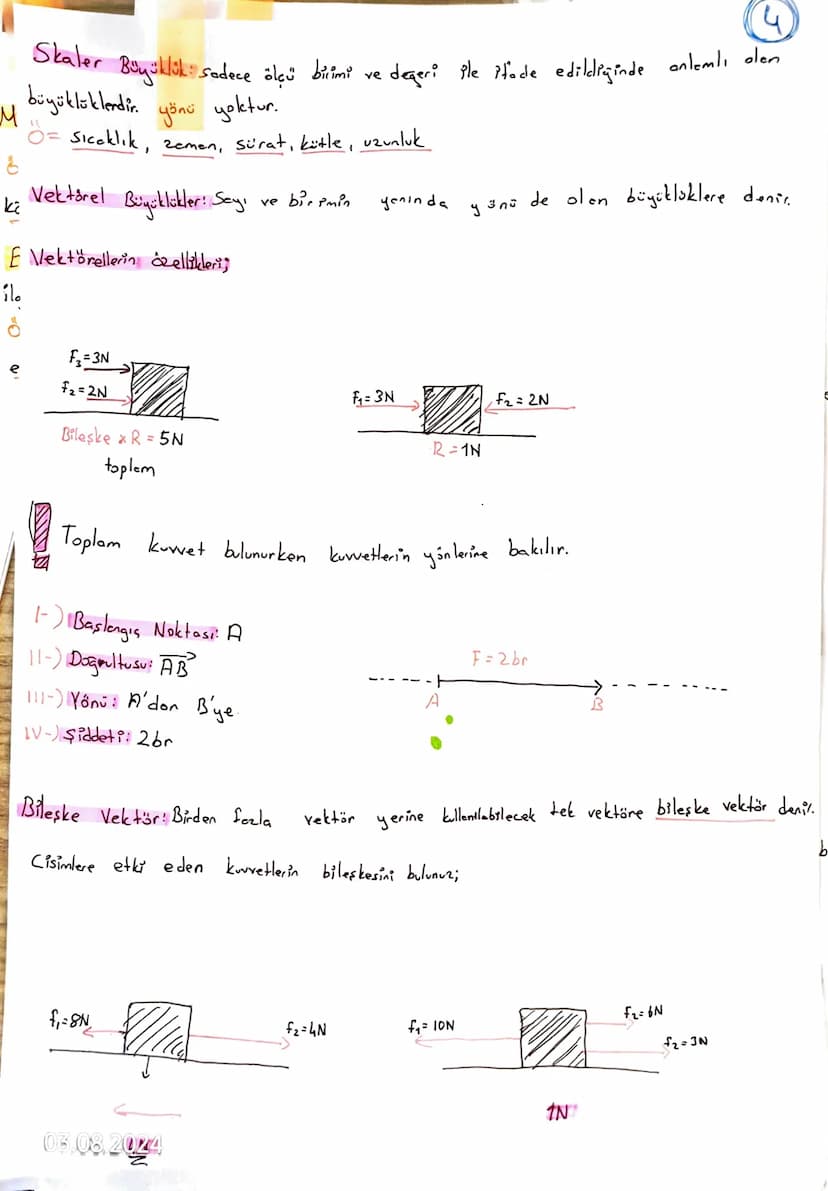 4
Skaler Büyüklük: sadece ölçü birimi ve değeri ile ifade edildiğinde anlamlı olan
büyüklüklerdir. yönü yoktur.
Ö= sıcaklık, zaman, sürat, kütle, uzunluk
Vektörel Büyüklükler: Sayı ve birimin yanında yönü de olan büyüklüklere denir.
Vektörellerin özellikleri;
F₃=3N
f₂=2N
Bileşke R = 5N
toplam
f₁=3N
f₂=2N
R=1N
Toplam kuvvet bulunurken kuvvetlerin yönlerine bakılır.
I-) Başlangıç Noktası: A
II-) Doğrultusu: AB
III-) Yönü: A'dan B'ye
IV-) Şiddeti: 2br
F=2br
A
B
Bileşke Vektör: Birden fazla vektör yerine kullanılabilecek tek vektöre bileşke vektör denir.
Cisimlere etki eden kuvvetlerin bileşkesini bulunuz;
f₁=8N
f₂=4N
f₁=10N
f₂=6N
f₂=3N
1N
03.08.2024